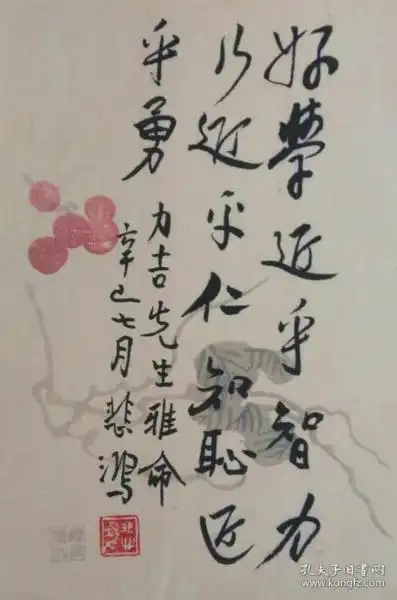 好學近乎智力
行近乎仁知恥近
乎勇
力吉先生雅命
辛巳七月悲鴻
孔夫子旧书网